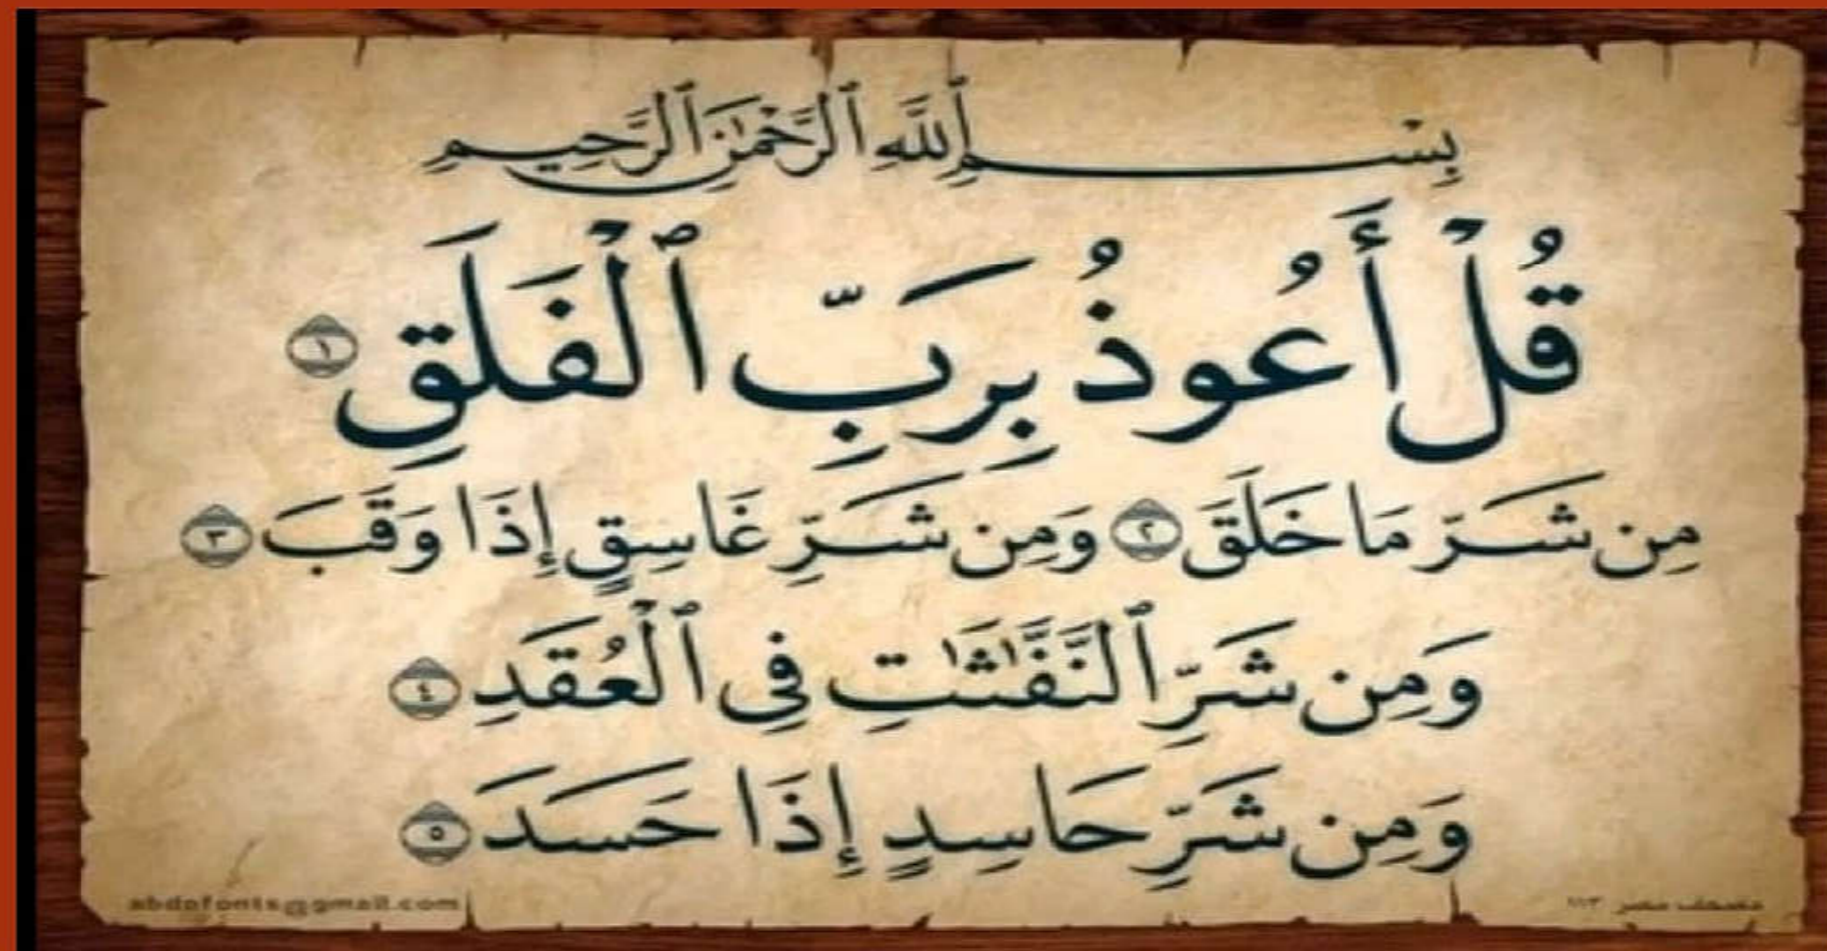 بِسْمِ ٱللَّهِ ٱلرَّحْمَٰنِ ٱلرَّحِيمِ
قُلْ أَعُوذُ بِرَبِّ ٱلْفَلَقِ ١
مِن شَرِّ مَا خَلَقَ ٢ وَمِن شَرِّ غَاسِقٍ إِذَا وَقَبَ ٣
وَمِن شَرِّ ٱلنَّفَّٰثَٰتِ فِى ٱلْعُقَدِ ٤
وَمِن شَرِّ حَاسِدٍ إِذَا حَسَدَ ٥
abdofonts@gmail.com
مصحف مصر ١١٣